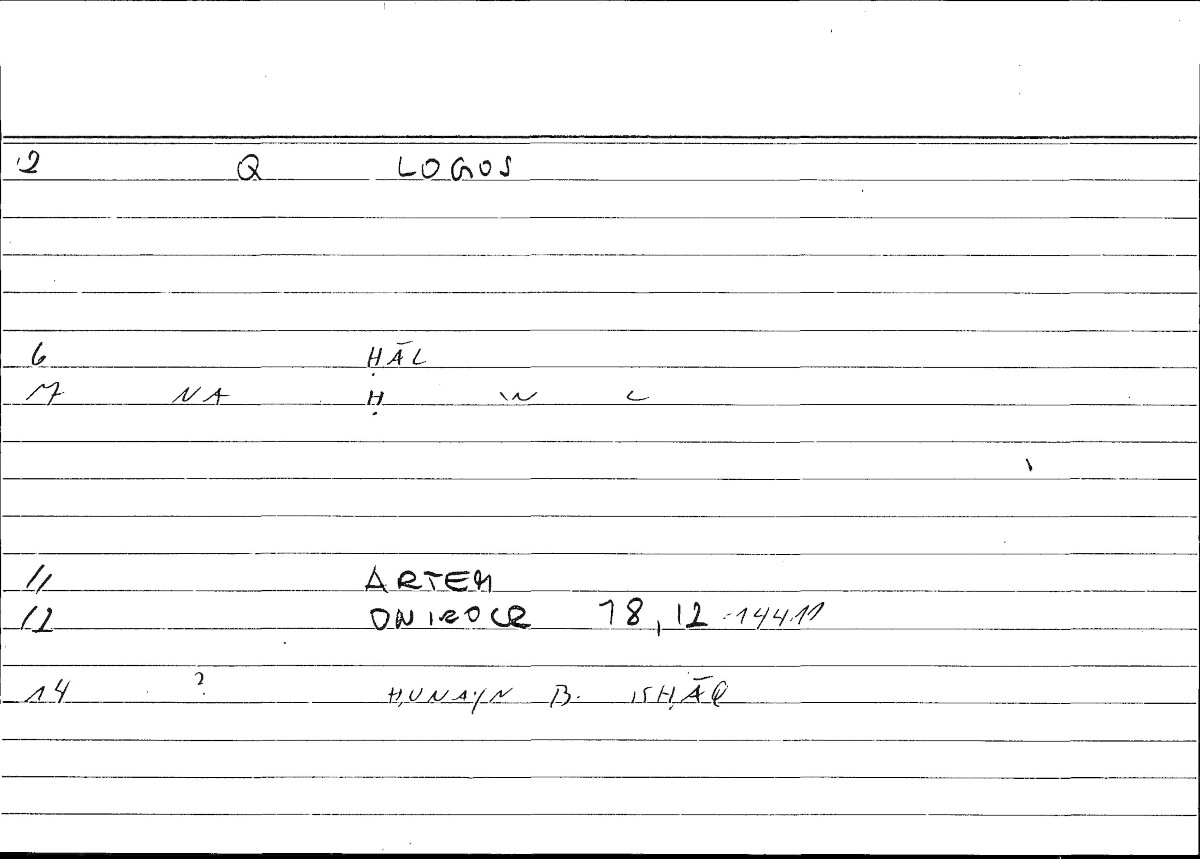 2 Q LOGOS
6 ḤĀL
17 NA Ḥ W L
11 ARTEM
12 ONIROCR 18,12-144.11
14 ? ḤUNAYN B. ISḤĀQ